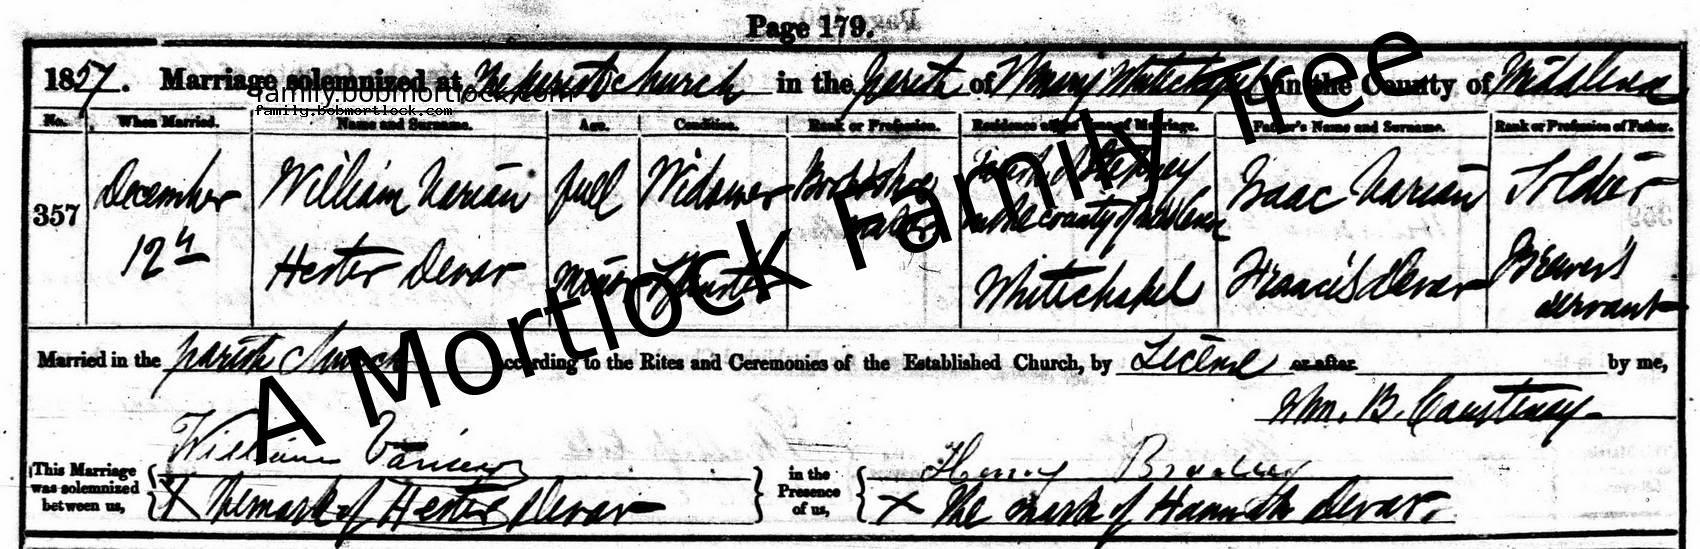 Page 179.
1857. Marriage solemnized at The parish church in the parish of St Mary Whitechapel in the County of Middlesex
family.bobmortlock.com
family.bobmortlock.com
No. When Married. Name and Surname. Age. Condition. Rank or Profession. Residence at the Time of Marriage. Father's Name and Surname. Rank or Profession of Father.
357 December 12th William Varian full Widower Isaac Varian Soldier
in the county of Middlesex
Hester Devar minor Spinster Whitechapel Francis Devar Brewer's servant
Married in the parish church according to the Rites and Ceremonies of the Established Church, by Licence or after by me,
Wm. B. Courtenay
This Marriage was solemnized between us, William Varian in the Presence of us, Henry Bradley
X The mark of Hester Devar X The mark of Hannah Devar.
A Mortlock Family Tree